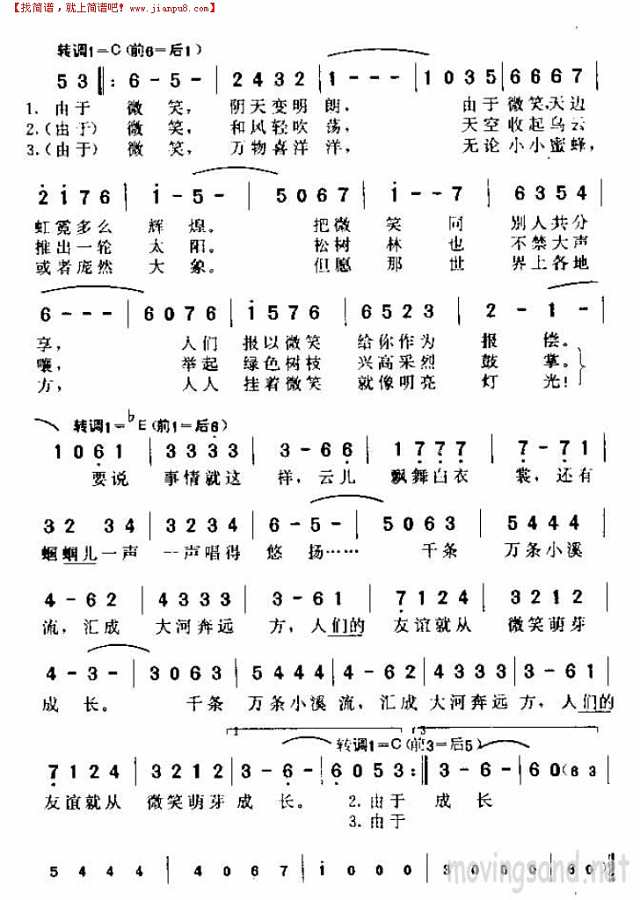 【找简谱，就上简谱吧！www.jianpu8.com】
转调1=C(前6=后1)
5 3 ‖: 6 - 5 - | 2 4 3 2 | 1 - - - | 1 0 3 5 | 6 6 6 7 |
1. 由于 微 笑， 阴天变明 朗， 由于 微笑，天边
2.(由于) 微 笑， 和风轻吹 荡， 天空 收起乌云
3.(由于) 微 笑， 万物喜洋 洋， 无论 小小蜜蜂，
2 1 7 6 | 1 - 5 - | 5 0 6 7 | 1 - - 7 | 6 3 5 4 |
虹霓多么 辉 煌。 把微 笑 同 别人共分
推出一轮 太 阳。 松树 林 也 不禁大声
或者庞然 大 象。 但愿 那 世 界上各地
6 - - - | 6 0 7 6 | 1 5 7 6 | 6 5 2 3 | 2 - 1 - | 1 - 0 |
享， 人们 报以微笑 给你作为 报 偿。
嚷， 举起 绿色树枝 兴高采烈 鼓 掌。
方， 人人 挂着微笑 就像明亮 灯 光！
转调1=♭E(前1=后6)
1 0 6 1 | 3 3 3 3 | 3 - 6 6 | 1 7 7 7 | 7 - 7 1 |
要说 事情就这 样，云儿 飘舞白衣 裳，还有
3 2 3 4 | 3 2 3 4 | 6 - 5 - | 5 0 6 3 | 5 4 4 4 |
蝈蝈儿一声 一声唱得 悠 扬…… 千条 万条小溪
4 - 6 2 | 4 3 3 3 | 3 - 6 1 | 7 1 2 4 | 3 2 1 2 |
流，汇成 大河奔远 方，人们的 友谊就从 微笑萌芽
4 - 3 - | 3 0 6 3 | 5 4 4 4 | 4 - 6 2 | 4 3 3 3 | 3 - 6 1 |
成 长。 千条 万条小溪 流，汇成 大河奔远 方，人们的
1 转调1=C(前3=后5) 3
7 1 2 4 | 3 2 1 2 | 3 - 6 - | 6 0 5 3 :‖ 3 - 6 - | 6 0 (6 3 |
友谊就从 微笑萌芽 成 长。 2. 由于 成 长
3. 由于
5 4 4 4 | 4 0 6 7 | 1 0 0 0 | 3 0 0 0 | 6 0) ‖
movingsand.net